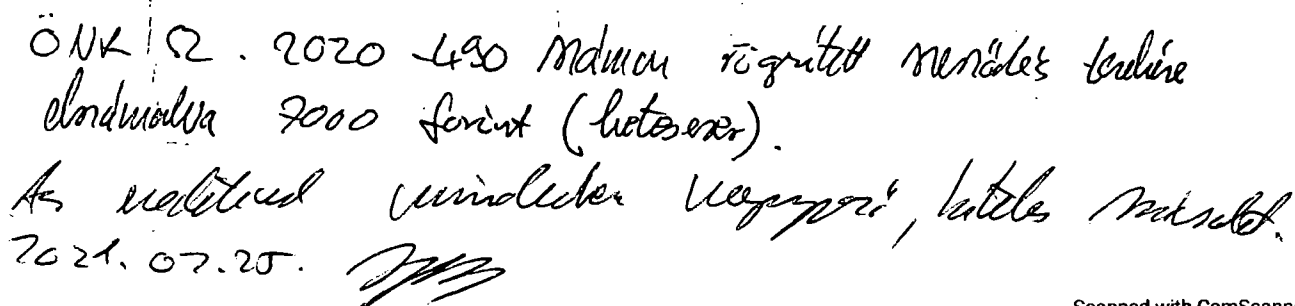 ÖNK/SZ. 2020-490 számon rögzített szerződés terhére
elszámolva 7000 forint (hétezer).
Az eredetivel mindenben megegyező, hiteles másolat.
2021. 07. 20.
Scanned with CamScanner